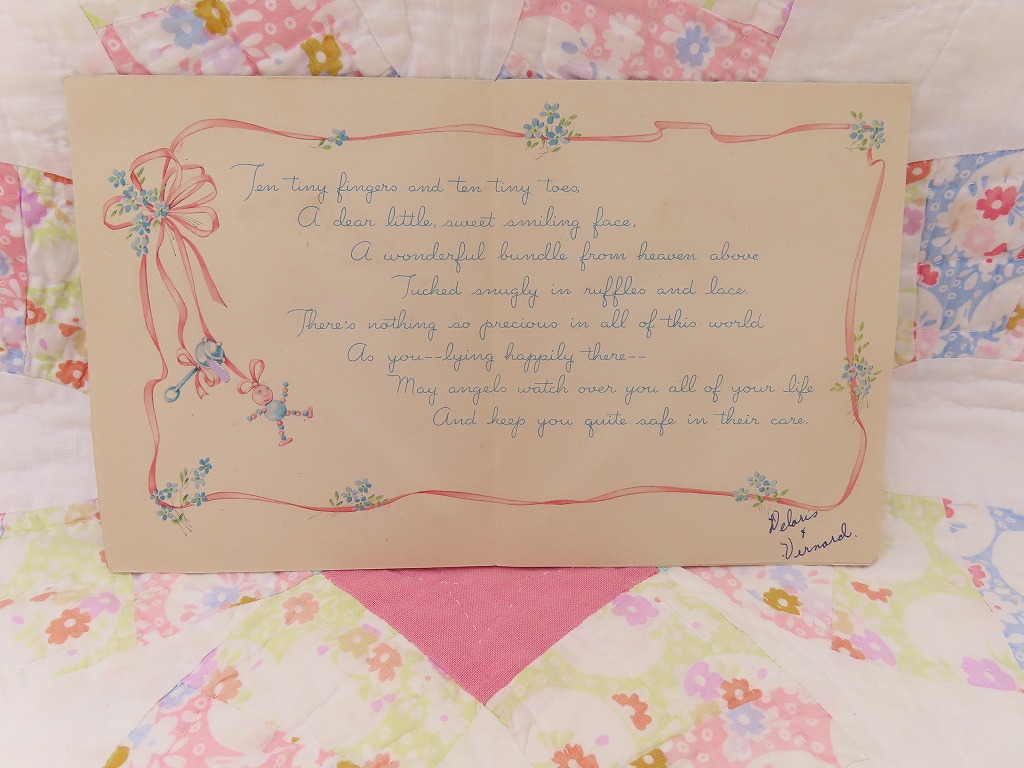 Ten tiny fingers and ten tiny toes,
A dear little, sweet smiling face,
A wonderful bundle from heaven above
Tucked snugly in ruffles and lace.
There's nothing so precious in all of this world
As you--lying happily there--
May angels watch over you all of your life
And keep you quite safe in their care.
Deloris
&
Vernard.